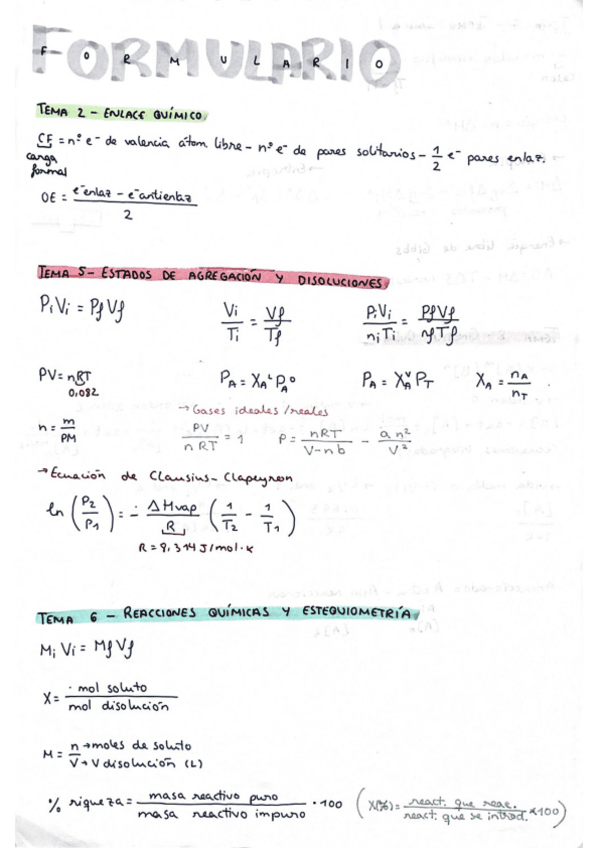 FORMULARIO
FORMULARIO
TEMA 2 - ENLACE QUÍMICO
CF = nº e⁻ de valencia átom libre - nº e⁻ de pares solitarios - 1/2 e⁻ pares enlaz.
carga
formal
OE = (e⁻enlaz - e⁻antienlaz) / 2
TEMA 5 - ESTADOS DE AGREGACIÓN Y DISOLUCIONES
PiVi = PfVf Vi/Ti = Vf/Tf PiVi/niTi = PfVf/nfTf
PV = nRT P_A = X_A^L P_A^o P_A = X_A^V P_T X_A = n_A/n_T
0,082
→ Gases ideales / reales
n = m/PM PV/nRT = 1 P = nRT/(V-nb) - an²/V²
→ Ecuación de Clausius - Clapeyron
ln (P2/P1) = - ΔHvap/R (1/T2 - 1/T1)
R = 8,314 J/mol·K
TEMA 6 - REACCIONES QUÍMICAS Y ESTEQUIOMETRÍA
MiVi = MfVf
X = mol soluto / mol disolución
M = n → moles de soluto / V → V disolución (L)
% riqueza = masa reactivo puro / masa reactivo impuro · 100 (X(%) = react. que reac. / react. que se introd. × 100)